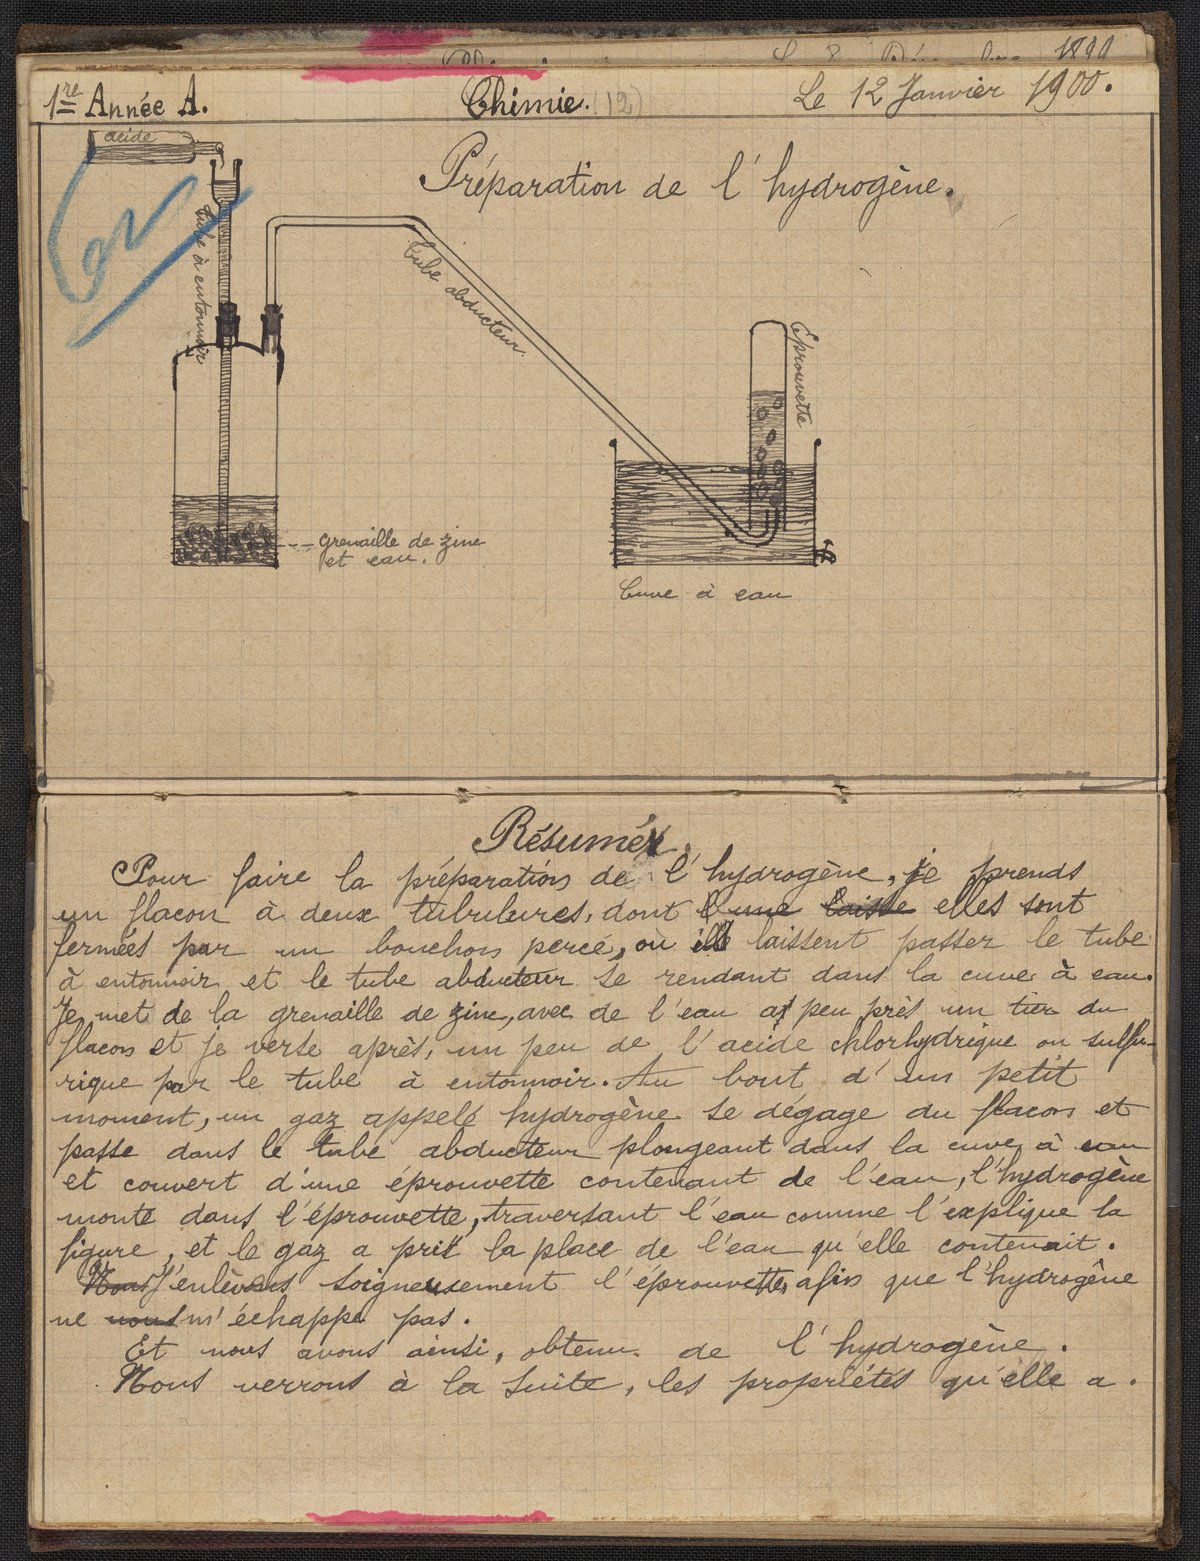 1890
1re Année A.
Chimie. (12)
Le 12 Janvier 1900.
acide
Préparation de l'hydrogène.
tube à entonnoir
tube abducteur
Eprouvette
grenaille de zinc
et eau.
Cuve à eau
Résumé
Pour faire la préparation de l'hydrogène, je prends
un flacon à deux tubulures, dont l'une laisse elles sont
fermées par un bouchon percé, où ils laissent passer le tube
à entonnoir et le tube abducteur se rendant dans la cuve à eau.
Je met de la grenaille de zinc, avec de l'eau a peu près un tier du
flacon et je verse après, un peu de l'acide chlorhydrique ou sulfu-
rique par le tube à entonnoir. Au bout d'un petit
moment, un gaz appelé hydrogène se dégage du flacon et
passe dans le tube abducteur plongeant dans la cuve à eau
et couvert d'une éprouvette contenant de l'eau, l'hydrogène
monte dans l'éprouvette, traversant l'eau comme l'explique la
figure, et le gaz a prit la place de l'eau qu'elle contenait.
Nous J'enlèvens soigneusement l'éprouvette, afin que l'hydrogène
ne nous m'échappe pas.
Et nous avons ainsi, obtenu de l'hydrogène.
Nous verrons à la suite, les propriétés qu'elle a.